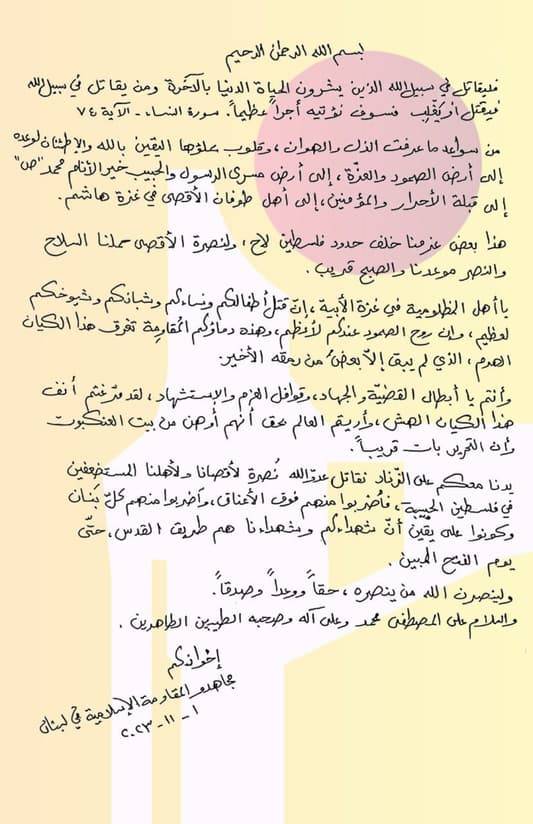 بسم الله الرحمن الرحيم
فليقاتل في سبيل الله الذين يشرون الحياة الدنيا بالآخرة ومن يقاتل في سبيل الله
فيقتل أو يغلب فسوف نؤتيه أجراً عظيماً. سورة النساء - الآية ٧٤
من سواعد ما عرفت الذل والهوان، وقلوب ملؤها اليقين بالله والإطمئنان لوعده
إلى أرض الصمود والعزّة، إلى أرض مسرى الرسول والحبيب خير الأنام محمد "ص"
إلى قبلة الأحرار والمؤمنين، إلى أهل طوفان الأقصى في غزة هاشم.
هذا بعض عزمنا خلف حدود فلسطين لاح، ولنصرة الأقصى حملنا السلاح
والنصر موعدنا والصبح قريب.
يا أهل المظلومية في غزة الأبية، إنّ قتل أطفالكم ونساءكم وشبانكم وشيوخكم
لعظيم، وإن روح الصمود عندكم لأعظم، وهذه دماؤكم المُقاوِمة تغرق هذا الكيان
الهدم، الذي لم يبق إلّا بعضٌ من رمقه الأخير.
وأنتم يا أبطال القضيّة والجهاد، وقوافل العزم والإستشهاد، لقد مرّغتم أنف
هذا الكيان الهش، وأريتم العالم بحق أنهم أوهن من بيت العنكبوت
وأن التحرير بات قريباً.
يدنا معكم على الزناد نقاتل عدوّ الله نُصرة لأقصانا ولأهلنا المستضعفين
في فلسطين الحبيبة، فاضربوا منهم فوق الأعناق، واضربوا منهم كلّ بَنان
وكونوا على يقين أنّ شهداءكم وشهداءنا هم طريق القدس، حتّى
يوم الفتح المبين.
ولينصرن الله من ينصره، حقاً ووعداً وصدقاً.
والسلام على المصطفى محمد وعلى آله وصحبه الطيبين الطاهرين.
إخوانكم
مجاهدو المقاومة الإسلامية في لبنان
١ - ١١ - ٢٠٢٣